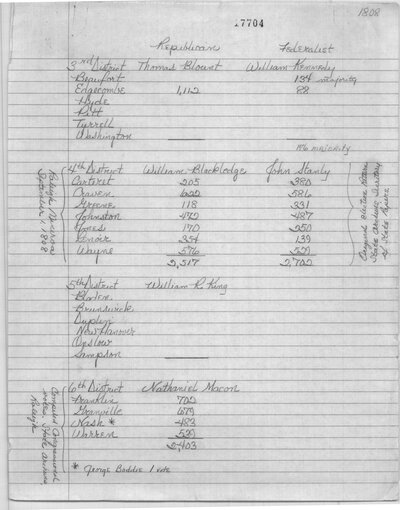 1808
17704
Republican Federalist
3rd District Thomas Blount William Kennedy
Beaufort 134 majority
Edgecombe 1,112 82
Hyde
Pitt
Tyrrell
Washington
196 majority
4th District William Blackledge John Stanly
Carteret 205 380
Craven 622 586
Greene 118 331
Johnston 472 487
Jones 170 250
Lenoir 354 139
Wayne 576 529
2,517 2,702
Raleigh
September 1, 1808
5th District William R. King
Bladen
Brunswick
Duplin
New Hanover
Onslow
Sampson
6th District Nathaniel Macon
Franklin 702
Granville 679
Nash * 483
Warren 529
2,403
Compiled Congressional
State Archives
Raleigh
* George Baddie 1 vote